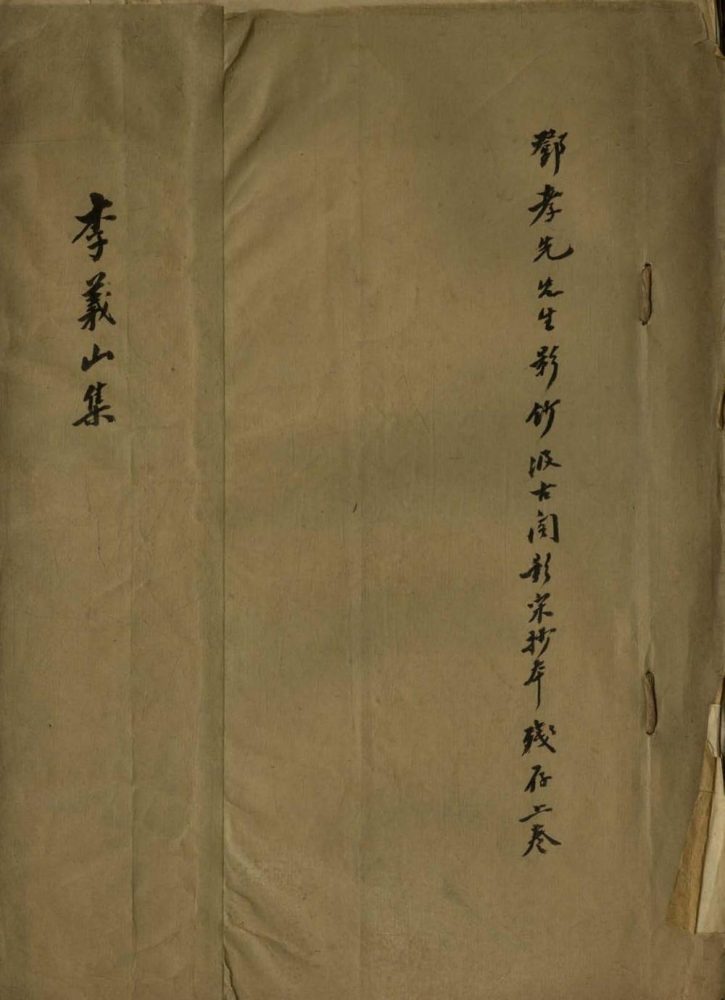 鄧孝先先生影鈔汲古閣影宋抄本 殘存上卷
李義山集